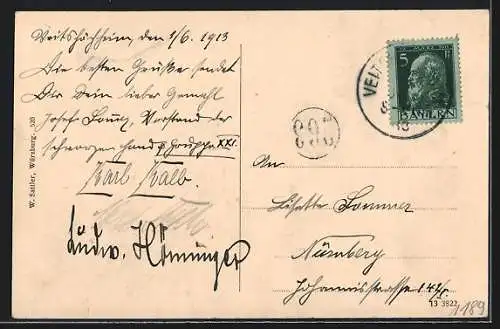 Veitshöchheim, den 1/6. 1913
Die besten Grüße sendet
Dir Dein lieber Gemahl
Josef Vorstand der
schwarzen Hand Gruppe XXI.
Karl Kalb.
Ludw. Hömninger
W. Sattler, Würzburg. 539
5
BAYERN
VEIT
308
An
Lisette Sommer
Nürnberg
Johannisstrasse
13 3822
1189